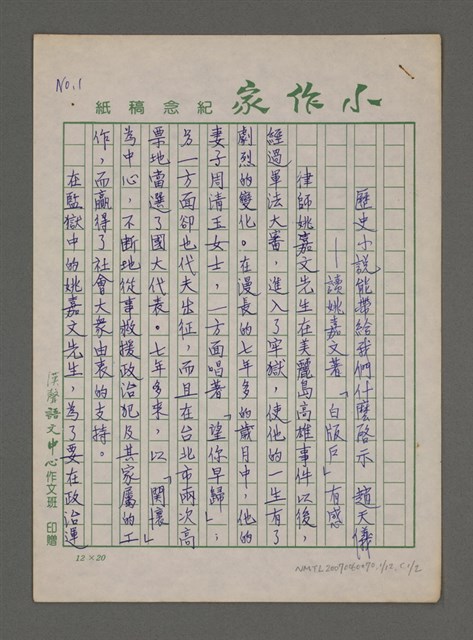 No.1
小作家
紀念稿紙
歷史小說能帶給我們什麼啓示　趙天儀
——讀姚嘉文著「白版戶」有感
律師姚嘉文先生在美麗島高雄事件以後，
經過軍法大審，進入了牢獄，使他的一生有了
劇烈的變化。在漫長的七年多的歲月中，他的
妻子周清玉女士，一方面唱著「望你早歸」；
另一方面卻也代夫出征，而且在台北市兩次高
票地當選了國大代表。七年多來，以「關懷」
為中心，不斷地從事救援政治犯及其家屬的工
作，而贏得了社會大衆由衷的支持。
在監獄中的姚嘉文先生，為了要在政治運
漢聲語文中心作文班　印贈
12×20